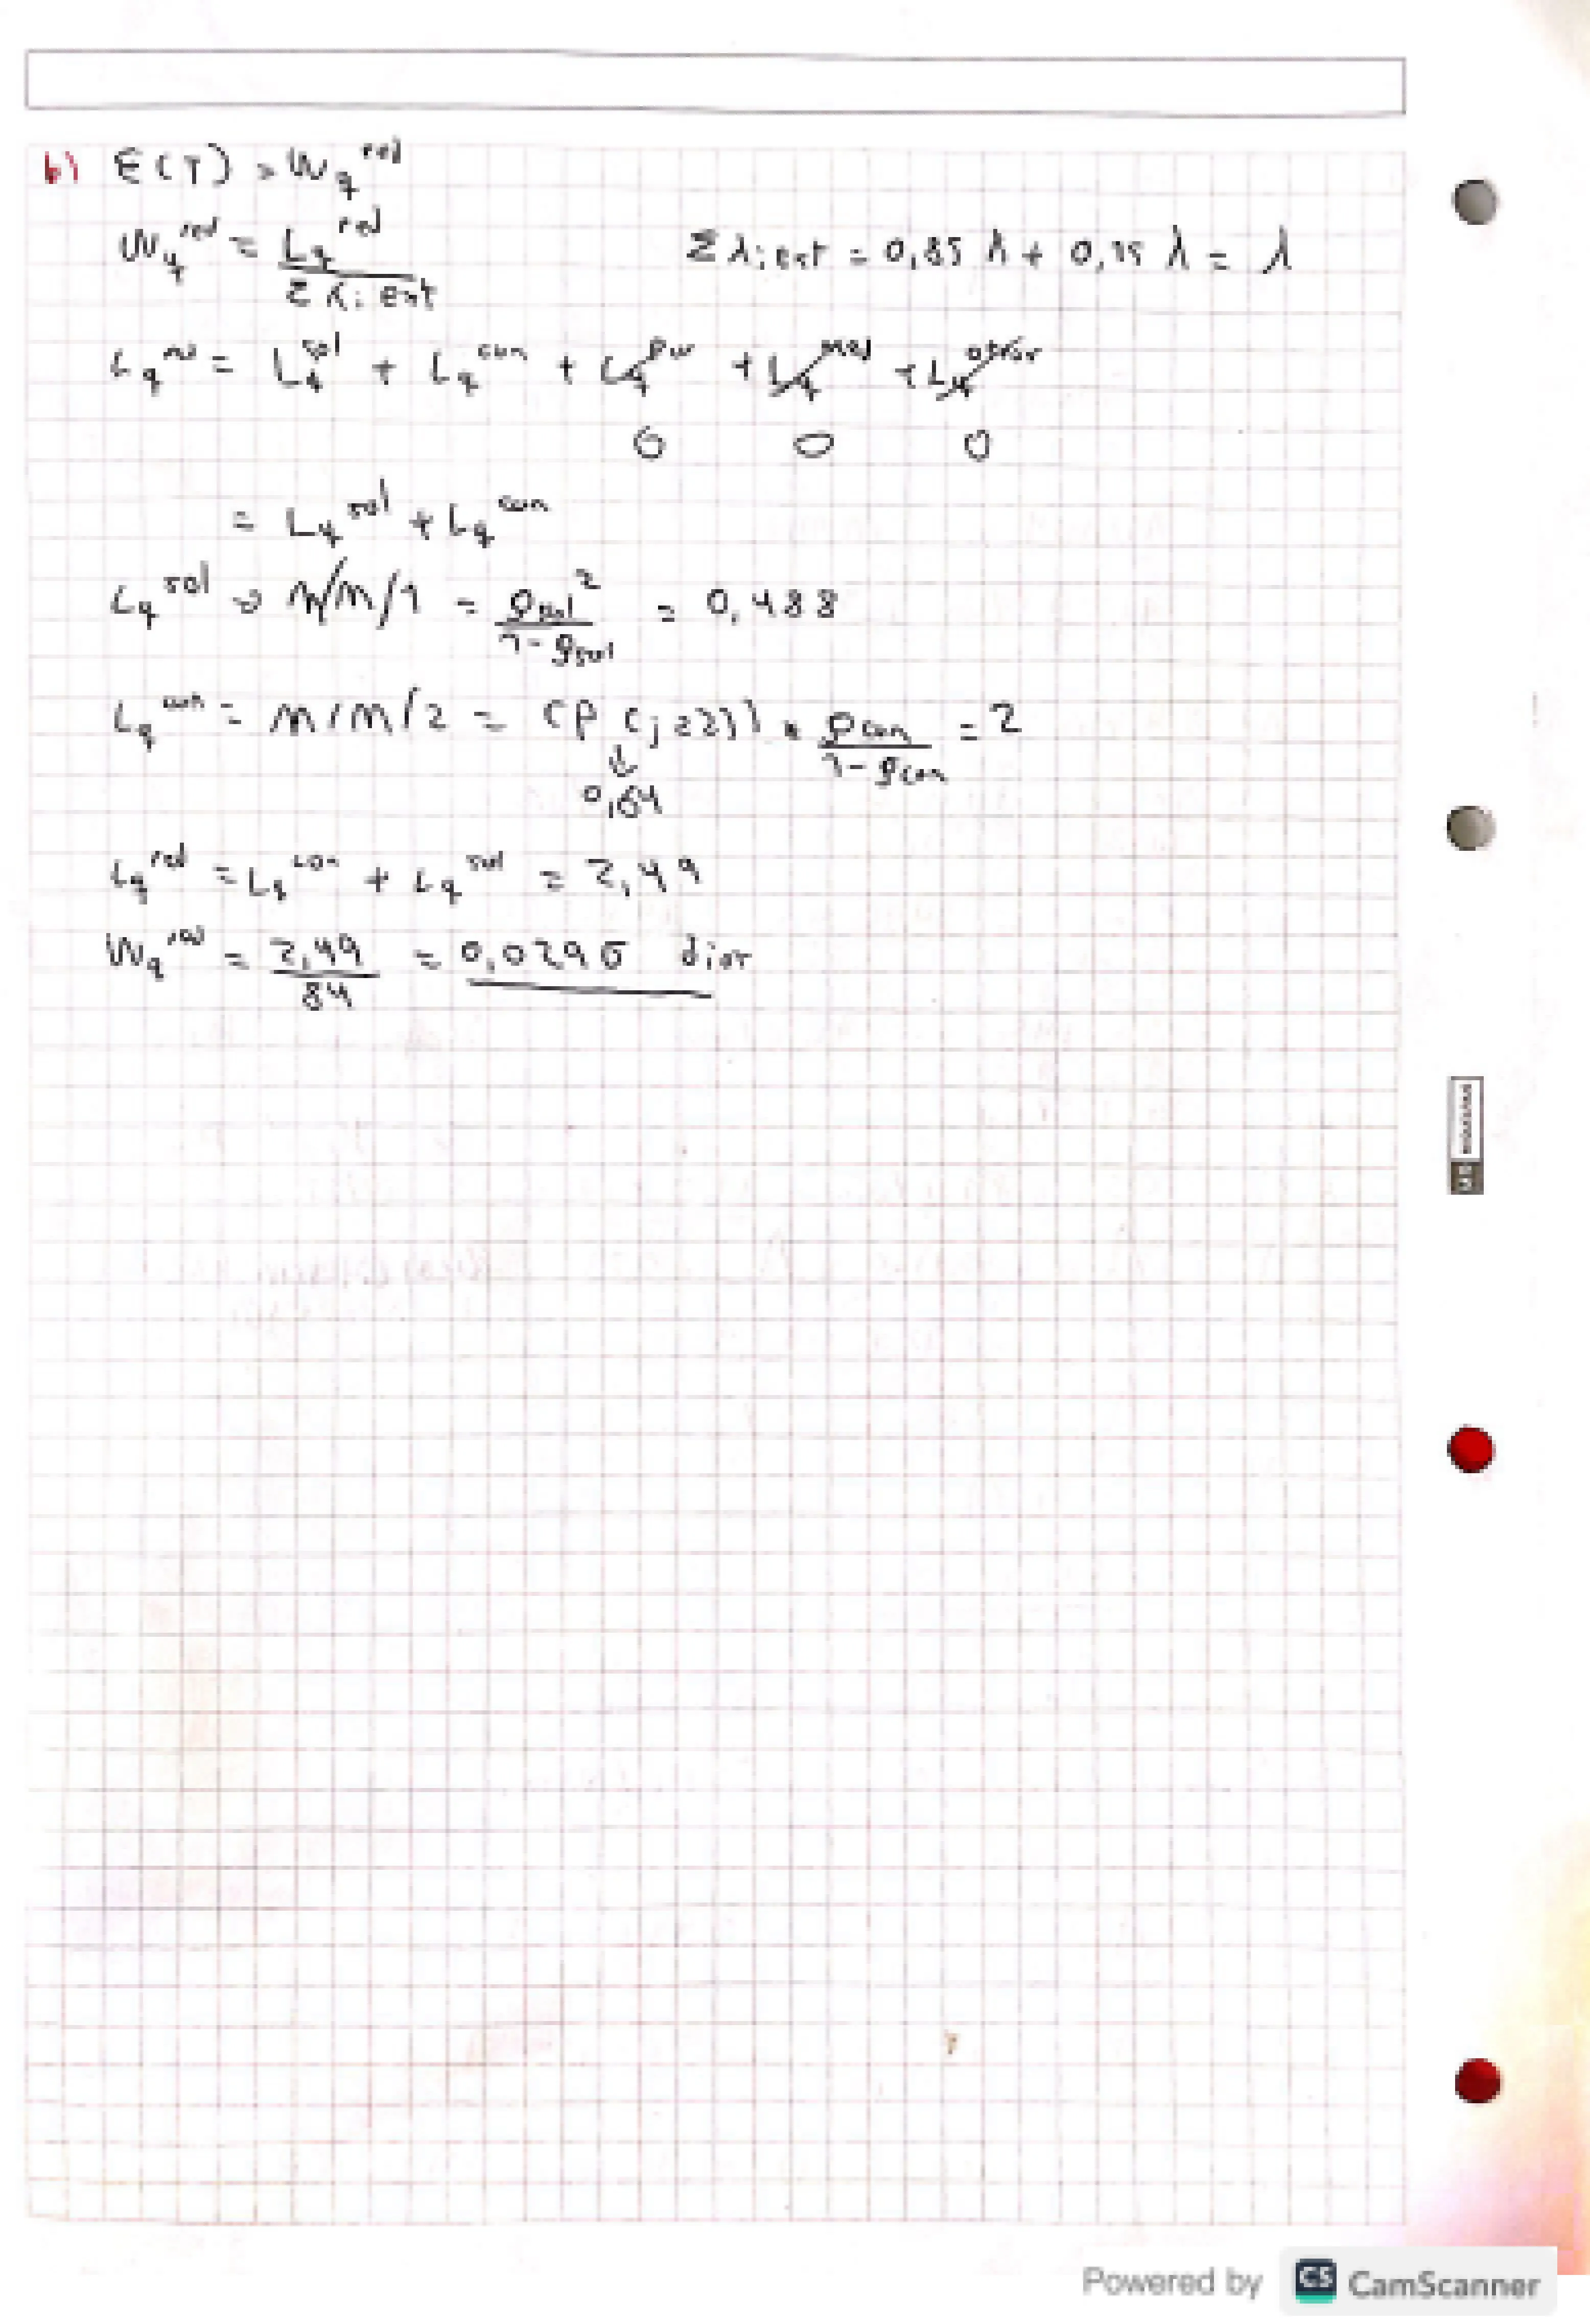 b) E(T) = Wq^red
Wq^red = Lq^red / Σλi ext    Σλi ext = 0,85 λ + 0,15 λ = λ
Lq^red = Lq^sol + Lq^con + Lq + Lq + Lq
0 0 0
= Lq^sol + Lq^con
Lq^sol ⇒ M/M/1 = ρsol² / 1-ρsol = 0,488
Lq^con = M/M/2 = (P(j≥2)) * ρcon / 1-ρcon = 2
⇓
0,64
Lq^red = Lq^con + Lq^sol = 2,49
Wq^red = 2,49 / 84 = 0,0296 días
Powered by CS CamScanner